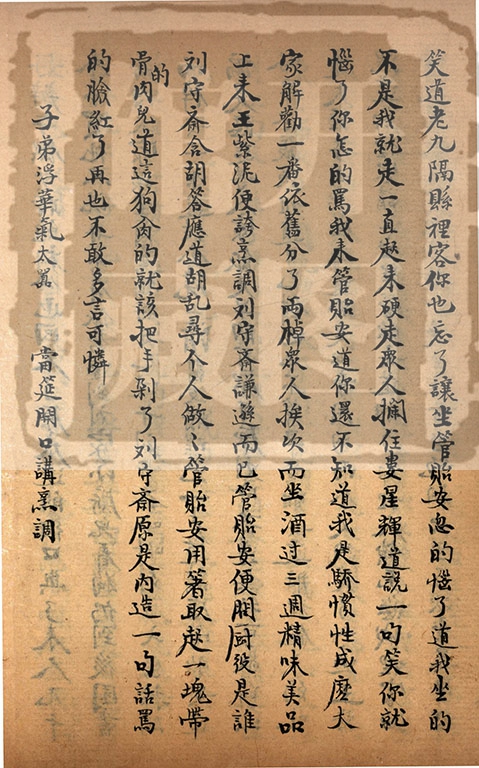 笑道老九隔縣裡客你也忘了讓坐管貽安忽的惱了道我坐的
不是我就走一直起來硬走眾人攔住婁星輝道説一句笑你就
惱了你怎的罵我来管貽安道你還不知道我是驕慣性成麽大
家解勸一番依舊分了兩棹眾人挨次而坐酒过三週精味美品
上来王紫泥便誇烹調刘守斋謙遜而已管貽安便問厨役是誰
刘守斋含胡答應道胡乱尋个人做〻管貽安用箸取起一塊帶
骨的肉兒道這狗肏的就該把手剁了刘守斋原是內造一句話罵
的臉紅了再也不敢多言可憐
子弟浮華氣太嚣 當筵開口講烹調